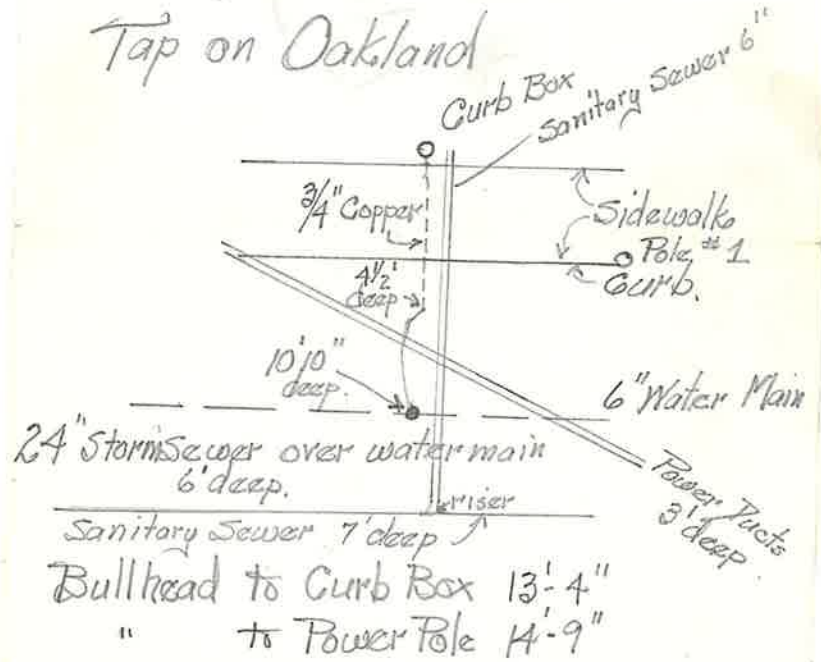 Tap on Oakland
Curb Box
Sanitary Sewer 6"
3/4" Copper
Sidewalk
Pole #1
Curb.
4 1/2' deep
10'10" deep.
6" Water Main
24" Storm Sewer over water main
6' deep.
riser
Power Ducts
3' deep.
Sanitary Sewer 7' deep
Bullhead to Curb Box 13'-4"
" to Power Pole 14'-9"